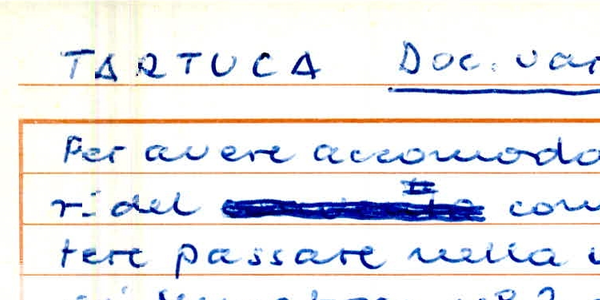 TARTUCA Doc. var
Per avere accomoda
ri del con
tere passare nella